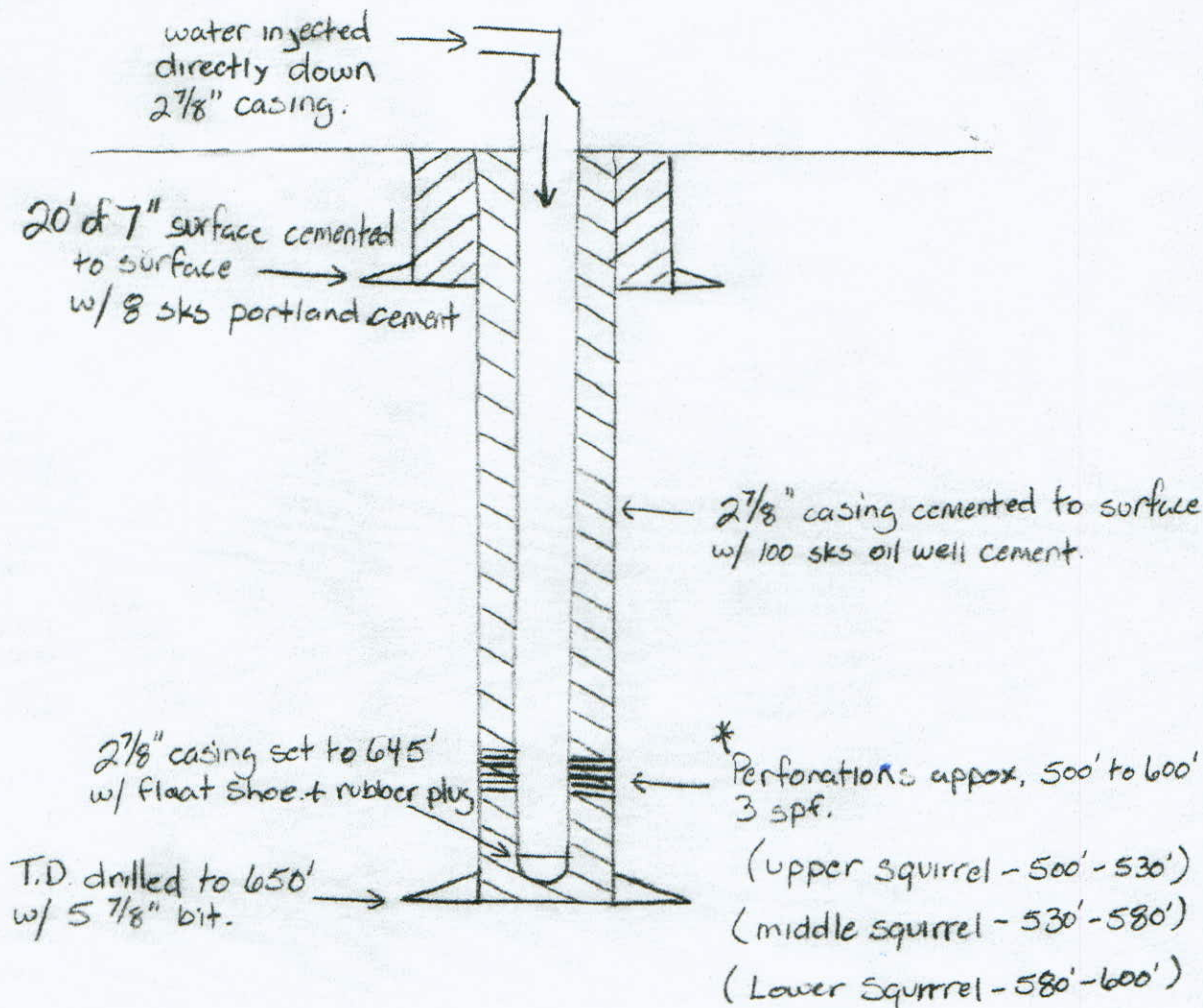 water injected
directly down
2 7/8" casing.
20' of 7" surface cemented
to surface
w/ 8 sks portland cement
2 7/8" casing cemented to surface
w/ 100 sks oil well cement.
2 7/8" casing set to 645'
w/ float shoe + rubber plug
T.D. drilled to 650'
w/ 5 7/8" bit.
*
Perforations appox. 500' to 600'
3 spf.
(upper squirrel - 500'-530')
(middle squirrel - 530'-580')
(Lower Squrrrel - 580'-600')